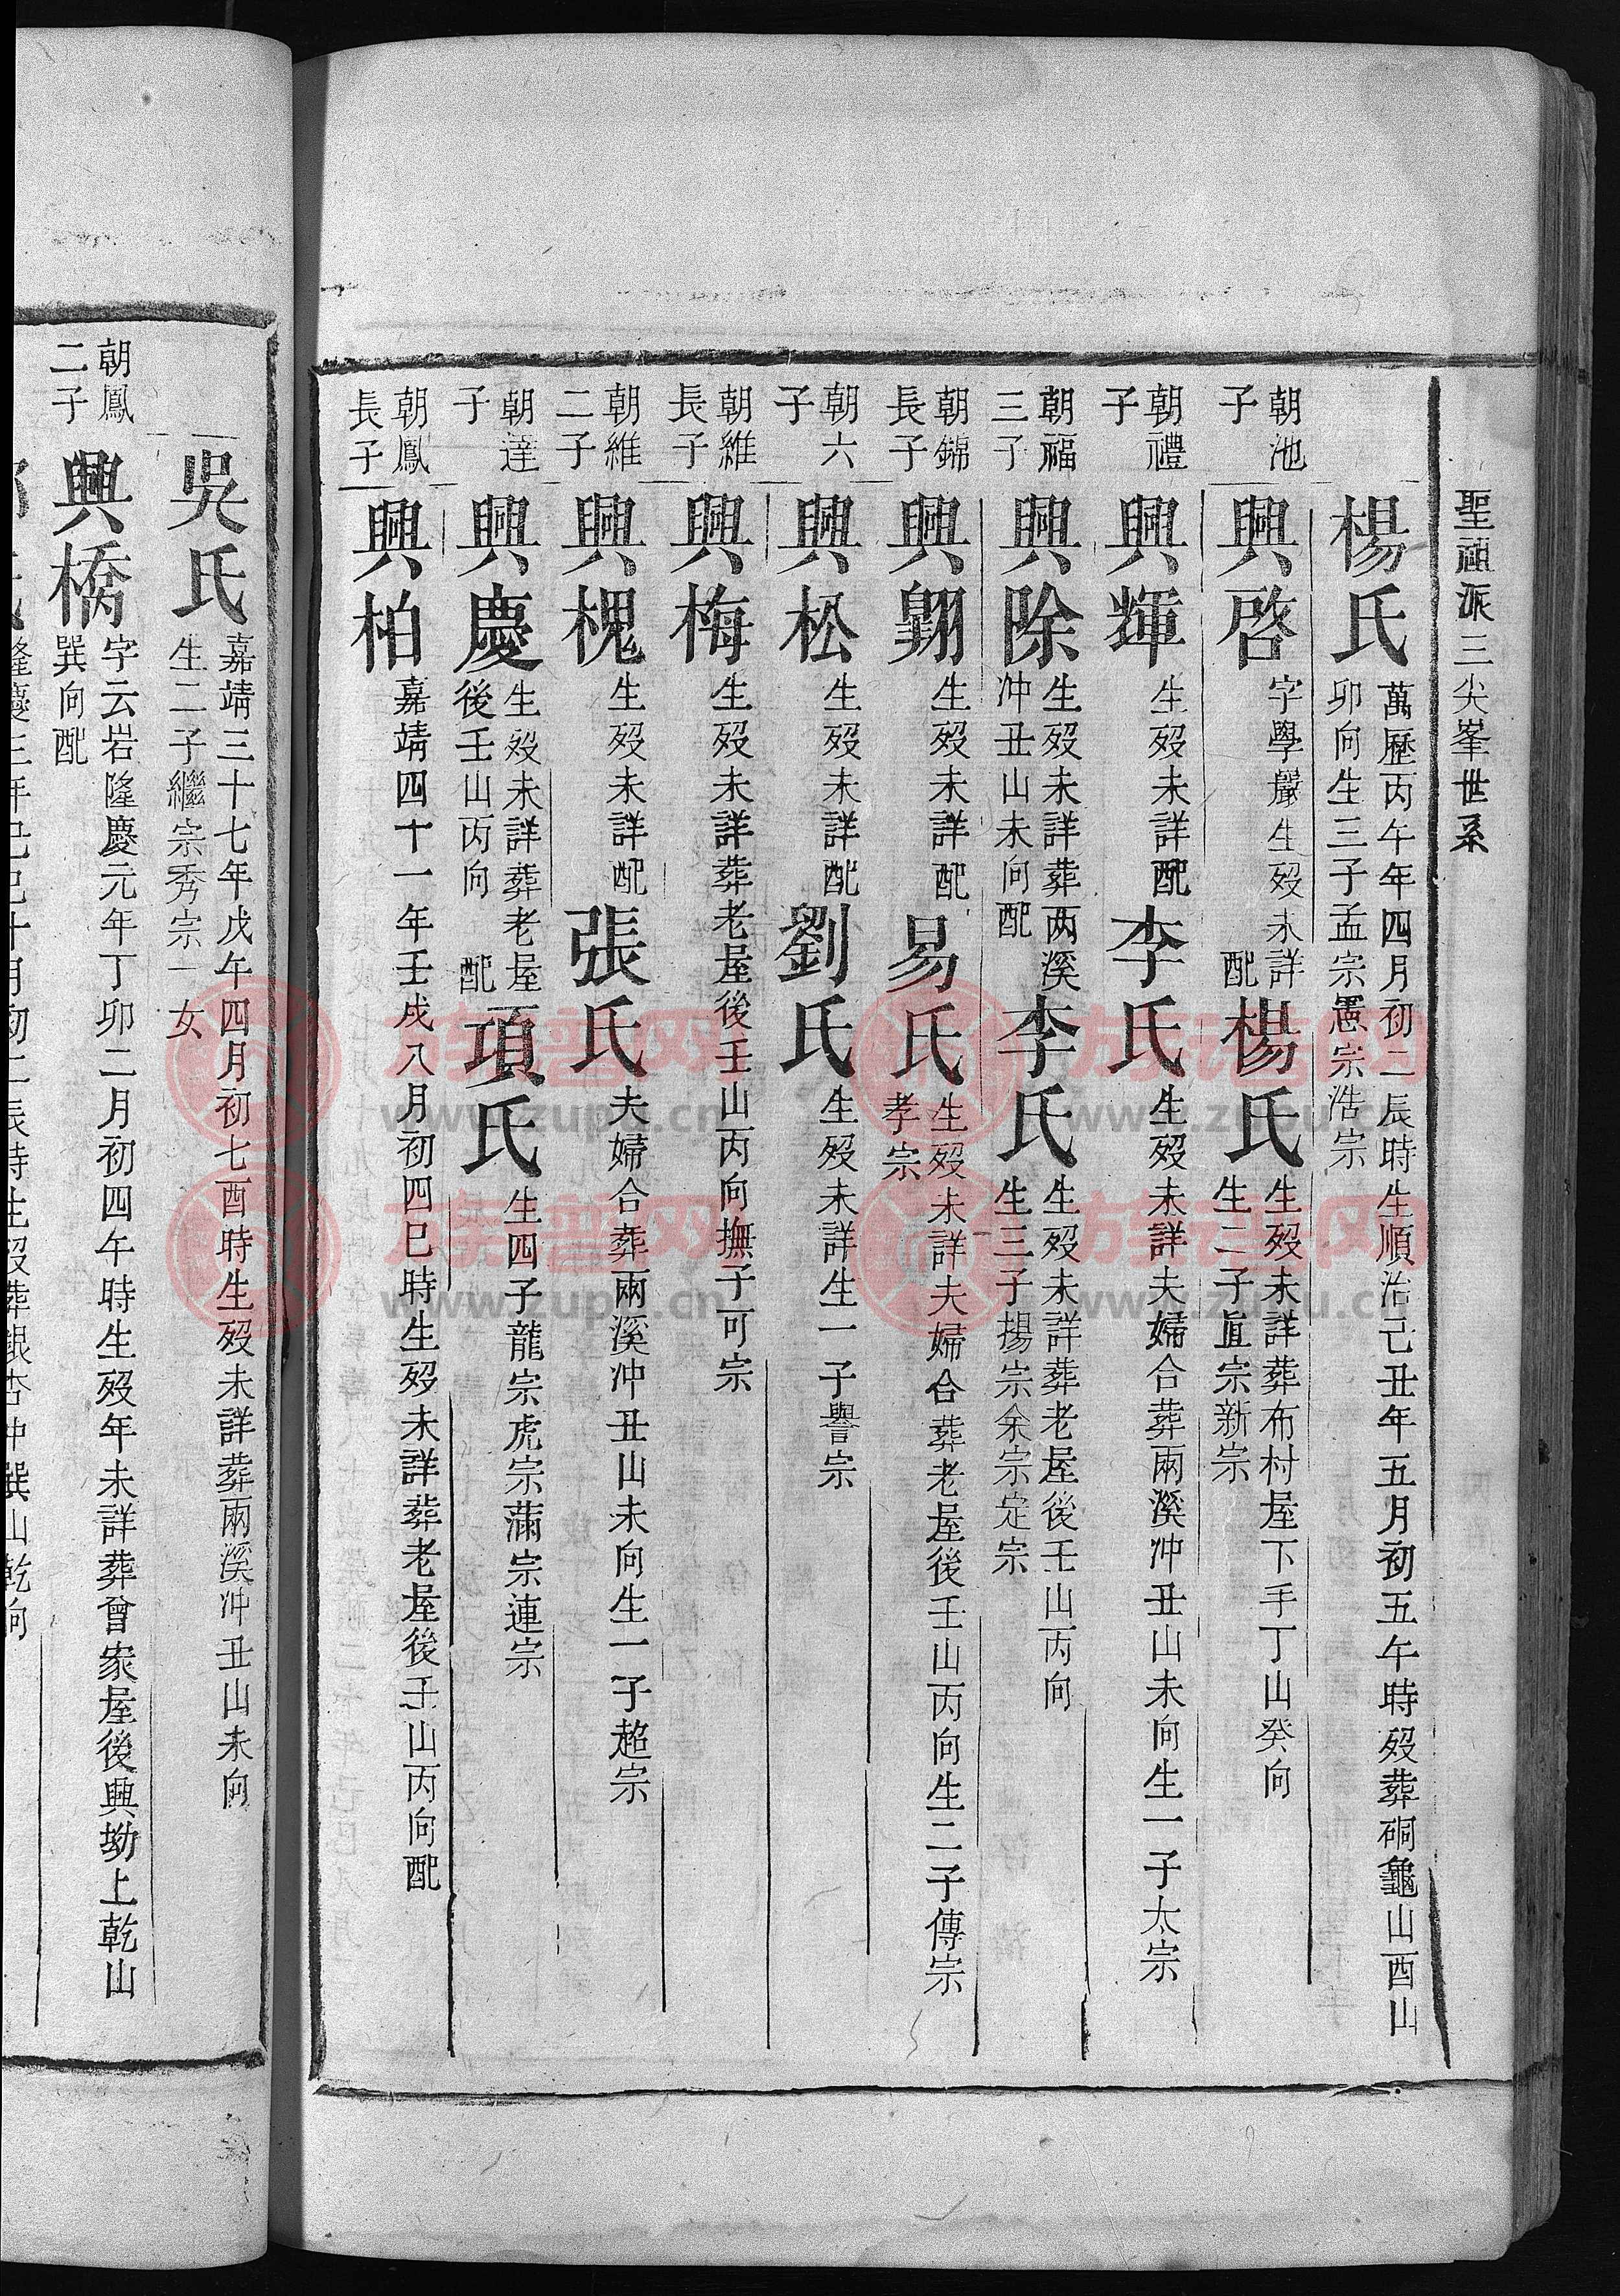 聖祖派三尖峯世系
楊氏
萬歷丙午年四月初二辰時生順治己丑年五月初五午時歿葬硐龜山酉山
卯向生三子孟宗愚宗浩宗
朝池
子
興啓
字學嚴生歿未詳
配
楊氏
生歿未詳葬布村屋下手丁山癸向
生二子眞宗新宗
朝禮
子
興輝
生歿未詳配
李氏
生歿未詳夫婦合葬兩溪沖丑山未向生一子太宗
朝福
三子
興除
生歿未詳葬两溪
沖丑山未向配
李氏
生歿未詳葬老屋後壬山丙向
生三子揚宗余宗定宗
朝錦
長子
興翺
生歿未詳配
易氏
生歿未詳夫婦合葬老屋後壬山丙向生二子傳宗
孝宗
朝六
子
興松
生歿未詳配
劉氏
生歿未詳生一子譽宗
朝維
長子
興梅
生歿未詳葬老屋後壬山丙向撫子可宗
朝維
二子
興槐
生歿未詳配
張氏
夫婦合葬兩溪沖丑山未向生一子超宗
朝達
子
興慶
生歿未詳葬老屋
後壬山丙向
配
項氏
生四子龍宗虎宗滿宗連宗
朝鳳
長子
興柏
嘉靖四十一年壬戌八月初四巳時生歿未詳葬老屋後壬山丙向配
吳氏
嘉靖三十七年戊午四月初七酉時生歿未詳葬兩溪沖丑山未向
生二子繼宗秀宗一女
朝鳳
二子
興橋
字云岩隆慶元年丁卯二月初四午時生歿年未詳葬曾家屋後興坳上乾山
巽向配
隆慶三年己巳十月初二辰時生歿葬銀杏沖巽山乾向
族譜网
www.zupu.cn
族譜网
www.zupu.cn
族譜网
www.zupu.cn
族譜网
www.zupu.cn